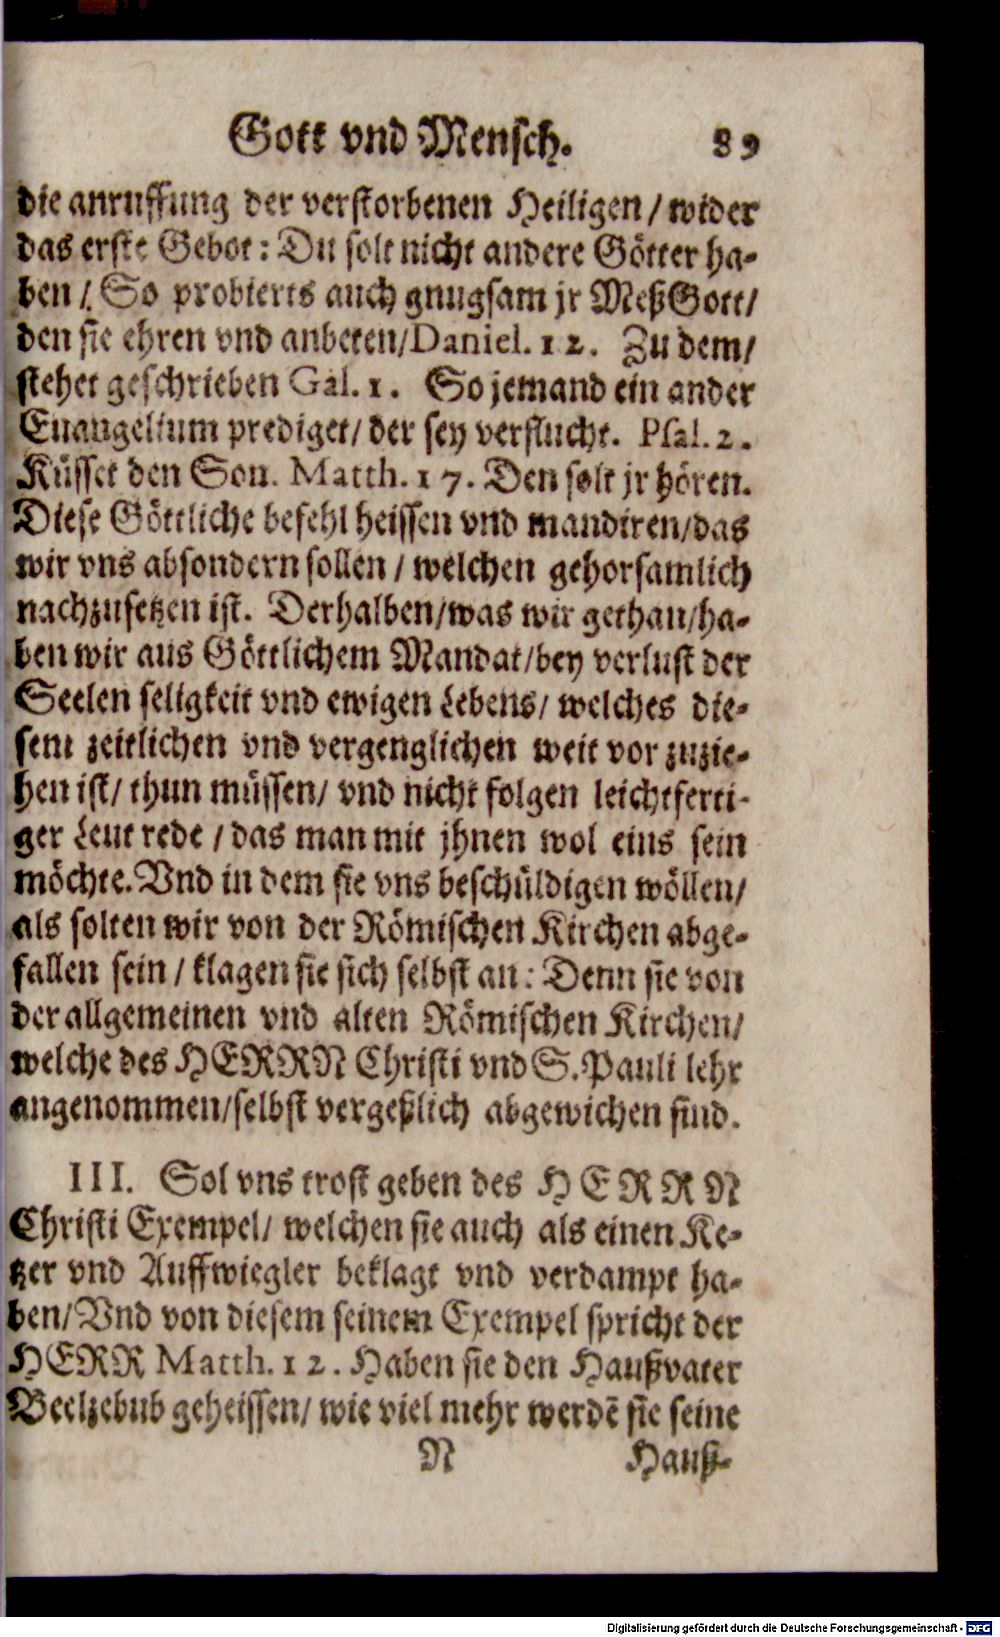 Gott vnd Mensch. 89
die anruffung der verstorbenen Heiligen / wider
das erste Gebot: Du solt nicht andere Götter ha-
ben /. So probierts auch gnugsam jr MeßGott/
den sie ehren vnd anbeten/Daniel. 12. Zu dem/
stehet geschrieben Gal. 1. So jemand ein ander
Euangelium prediget/ der sey verflucht. Psal. 2.
Küsset den Son. Matth. 17. Den solt jr hören.
Diese Göttliche befehl heissen vnd mandiren/das
wir vns absondern sollen / welchen gehorsamlich
nachzusetzen ist. Derhalben/was wir gethan/ha-
ben wir aus Göttlichem Mandat/bey verlust der
Seelen seligkeit vnd ewigen Lebens/ welches die-
sem zeitlichen vnd vergenglichen weit vor zuzie-
hen ist/ thun müssen/ vnd nicht folgen leichtferti-
ger Leut rede / das man mit jhnen wol eins sein
möchte. Vnd in dem sie vns beschüldigen wöllen/
als solten wir von der Römischen Kirchen abge-
fallen sein / klagen sie sich selbst an: Denn sie von
der allgemeinen vnd alten Römischen Kirchen/
welche des HERRN Christi vnd S. Pauli lehr
angenommen/selbst vergeßlich abgewichen sind.
III. Sol vns trost geben des HERRN
Christi Exempel/ welchen sie auch als einen Ke-
tzer vnd Auffwiegler beklagt vnd verdampt ha-
ben/ Vnd von diesem seinem Exempel spricht der
HERR Matth. 12. Haben sie den Haußvater
Beelzebub geheissen/ wie viel mehr werdē sie seine
N Hauß-
Digitalisierung gefördert durch die Deutsche Forschungsgemeinschaft - DFG